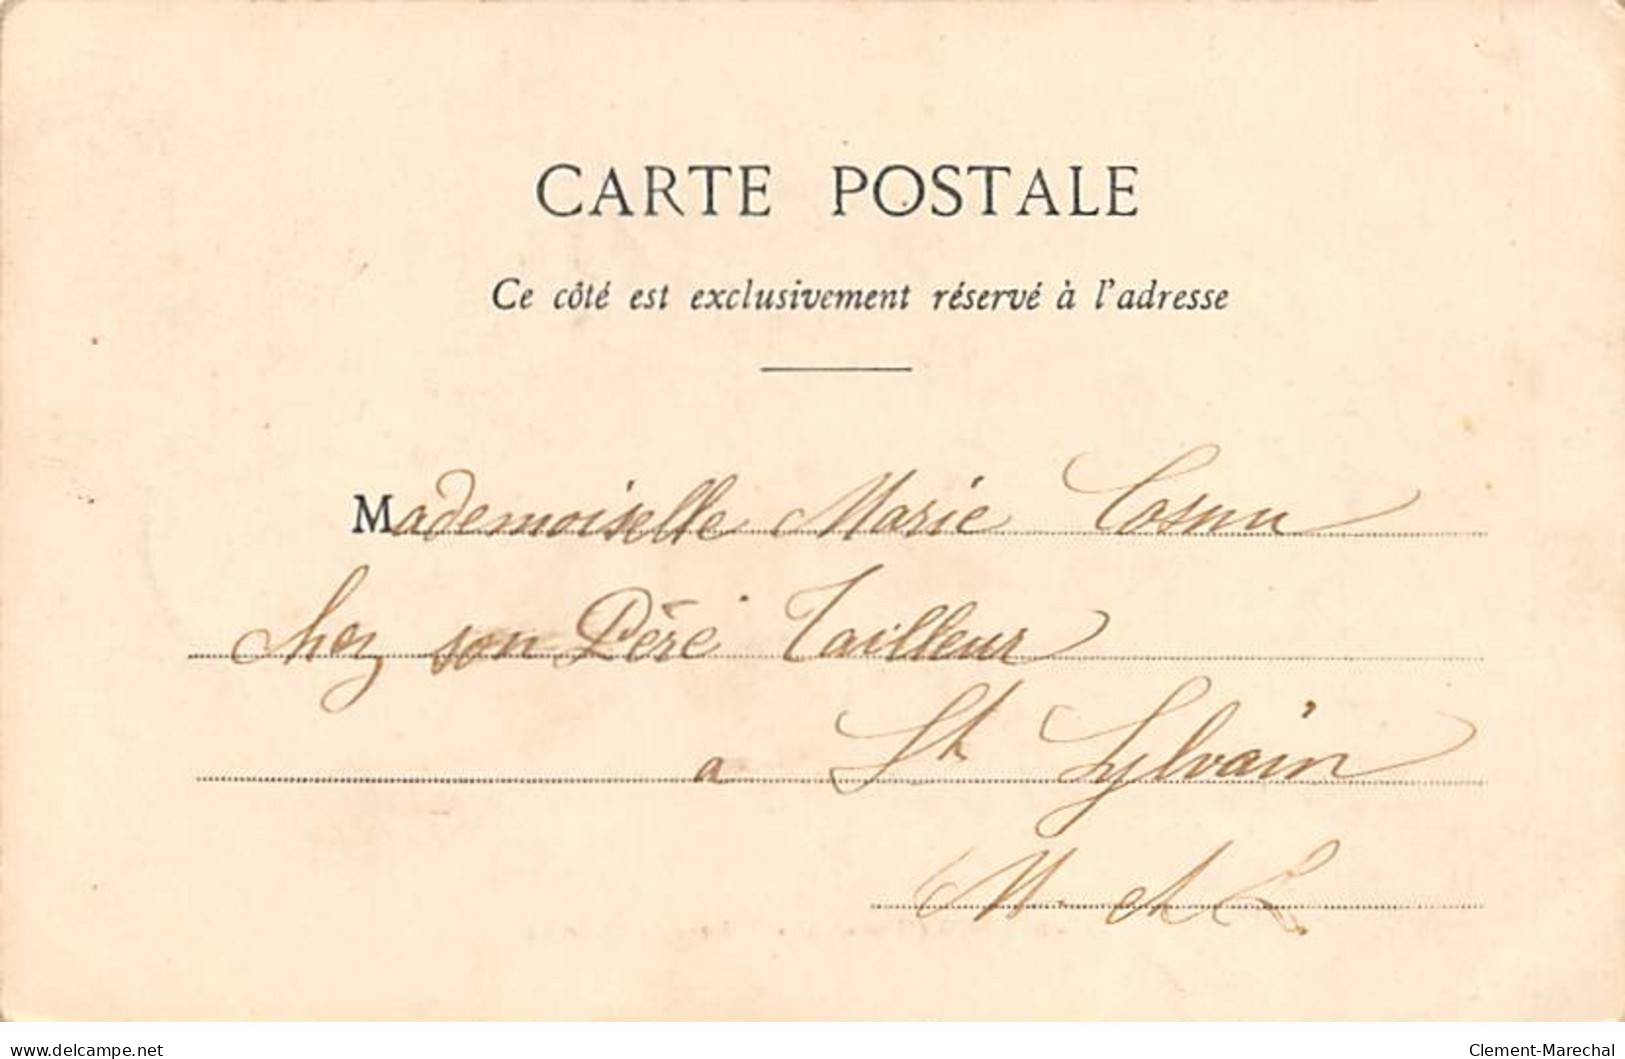 CARTE POSTALE
Ce côté est exclusivement réservé à l'adresse
Mademoiselle Marie
chez son Père Tailleur
a St Sylvain
M. et L.
www.delcampe.net Clement-Marechal